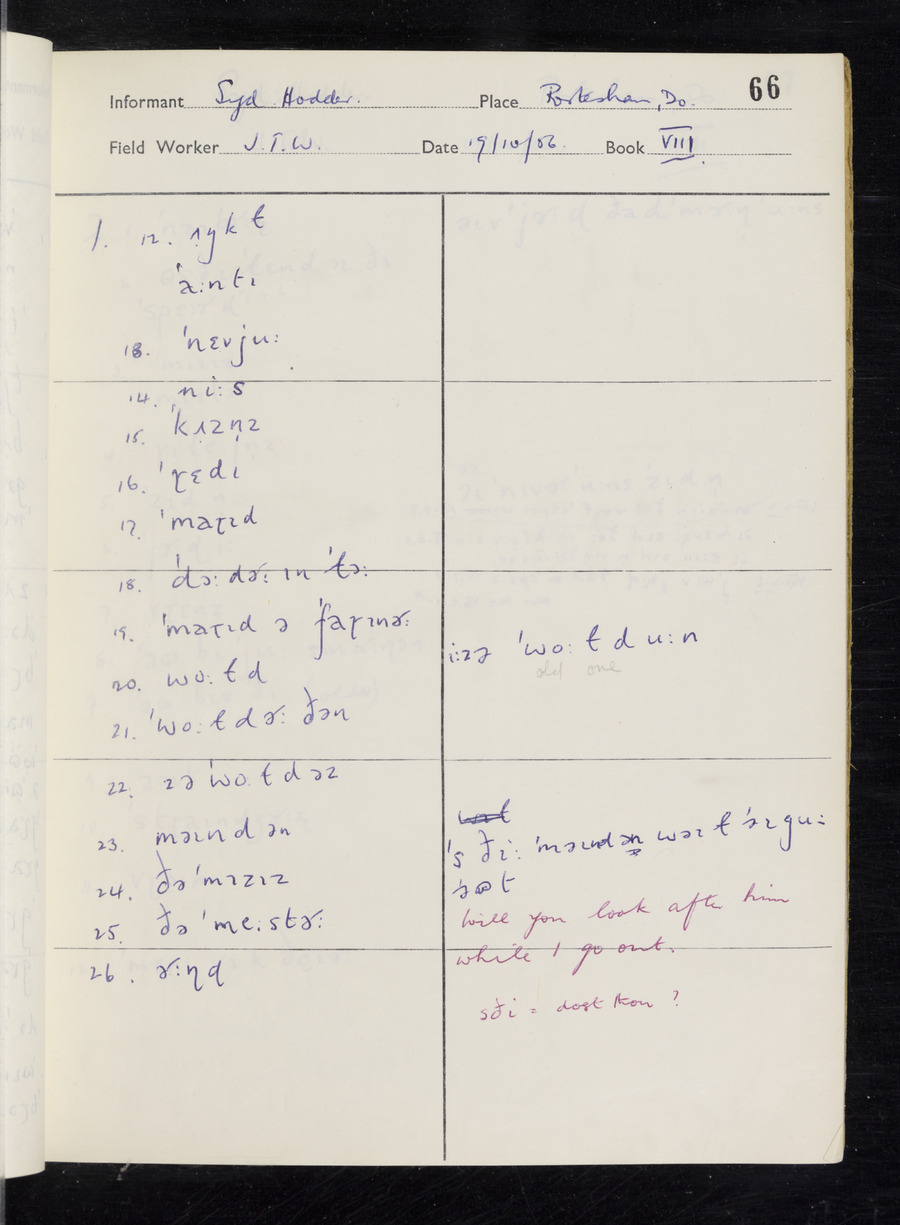 66
Informant Syd Hodder. Place Portesham, Do.
Field Worker J.T.W. Date 19/10/56. Book VIII
1. 12. ʌŋkɫ
ˈæːntɪ
13. ˈnɛvjuː
14. niːs
15. ˈkʌzn̩z
16. ˈɽɛdi
17. ˈmaɽɪd
18. ˈdɔːdəʴː ɪn ˈɫɔː
19. ˈmaɽɪd ə ˈfaɽɪnəʴː
20. woːɫd
21. ˈwoːɫdəʴː ðən
22. zə ˈwoːɫd əz
23. məɪnd ən
24. ðə ˈmɪzɪz
25. ðə ˈmeːstəʴː
26. əʴːɳɖ
iːzə ˈwoːɫd uːn
old one
's ðiː ˈməɪnd ən wəɪɫ ˈəɪ guː
Will you look after him
while I go out.
sði = dost thou ?